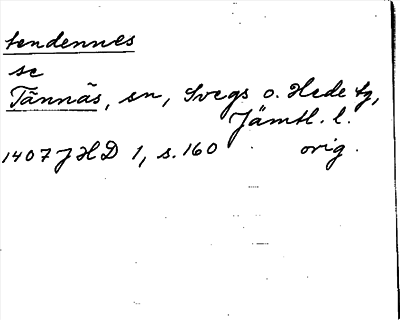 tendennes
se
Tännäs, sn, Svegs o. Hede tg,
Jämtl. l.
1407 JHD 1, s. 160 orig.